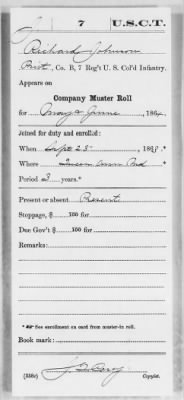 J 7 U.S.C.T.
Richard Johnson
Co. B, 7 Reg't U. S. Col'd Infantry.
Appears on
Company Muster Roll
for May & June, 1864.
Joined for duty and enrolled:
When Sept 25, 186 *
Where Queen Ann Md
Period 3 years.*
Present or absent Present
Stoppage, $ 100 for
Due Gov't $ 100 for
Remarks:
* See enrollment on card from muster-in roll.
Book mark:
(358c) Copyist.